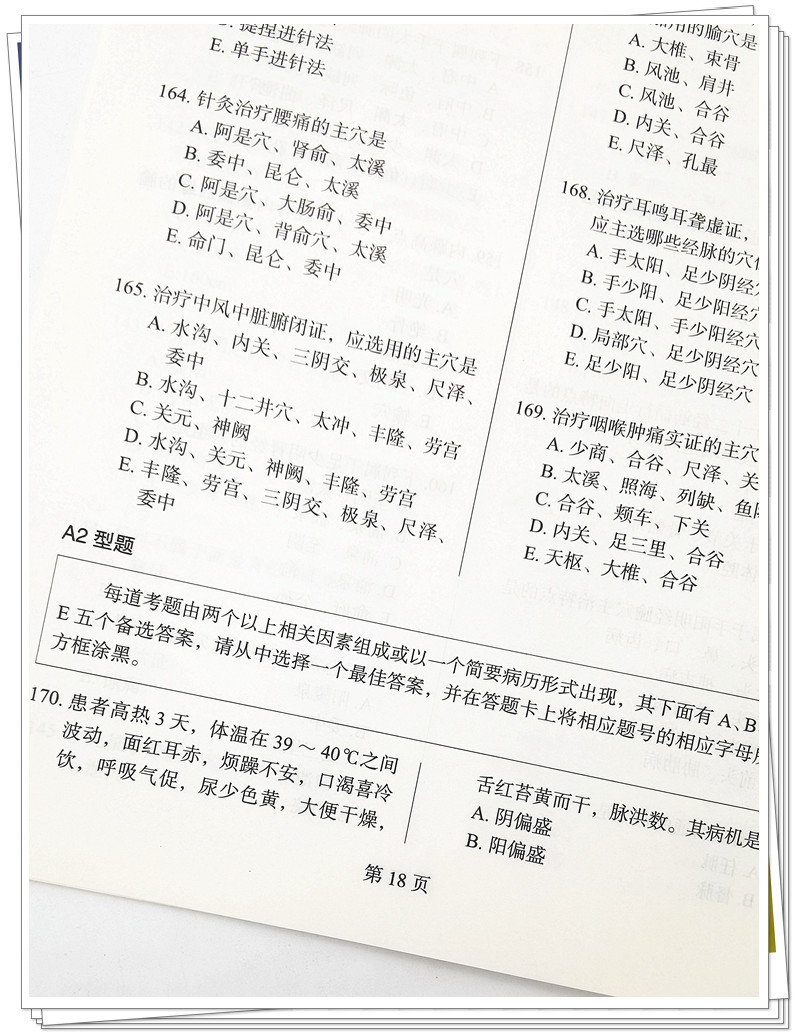 D. 提捏进针法
E. 单手进针法
164. 针灸治疗腰痛的主穴是
A. 阿是穴、肾俞、太溪
B. 委中、昆仑、太溪
C. 阿是穴、大肠俞、委中
D. 阿是穴、背俞穴、太溪
E. 命门、昆仑、委中
165. 治疗中风中脏腑闭证，应选用的主穴是
A. 水沟、内关、三阴交、极泉、尺泽、
委中
B. 水沟、十二井穴、太冲、丰隆、劳宫
C. 关元、神阙
D. 水沟、关元、神阙、丰隆、劳宫
E. 丰隆、劳宫、三阴交、极泉、尺泽、
委中
用的腧穴是
A. 大椎、束骨
B. 风池、肩井
C. 风池、合谷
D. 内关、合谷
E. 尺泽、孔最
168. 治疗耳鸣耳聋虚证，
应主选哪些经脉的穴
A. 手太阳、足少阴经
B. 手少阳、足少阳经穴
C. 手太阳、手少阳经穴
D. 局部穴、足少阴经穴
E. 足少阳、足少阴经穴
169. 治疗咽喉肿痛实证的主穴
A. 少商、合谷、尺泽、关
B. 太溪、照海、列缺、鱼
C. 合谷、颊车、下关
D. 内关、足三里、合谷
E. 天枢、大椎、合谷
A2 型题
每道考题由两个以上相关因素组成或以一个简要病历形式出现，其下面有 A、B
E 五个备选答案，请从中选择一个最佳答案，并在答题卡上将相应题号的相应字母
方框涂黑。
170. 患者高热 3 天，体温在 39 ～ 40℃之间
波动，面红耳赤，烦躁不安，口渴喜冷
饮，呼吸气促，尿少色黄，大便干燥，
舌红苔黄而干，脉洪数。其病机是
A. 阴偏盛
B. 阳偏盛
第 18 页